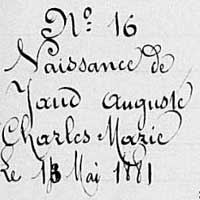 No. 16
Naissance de
Jaud Auguste
Charles Marie
Le 13 Mai 1881